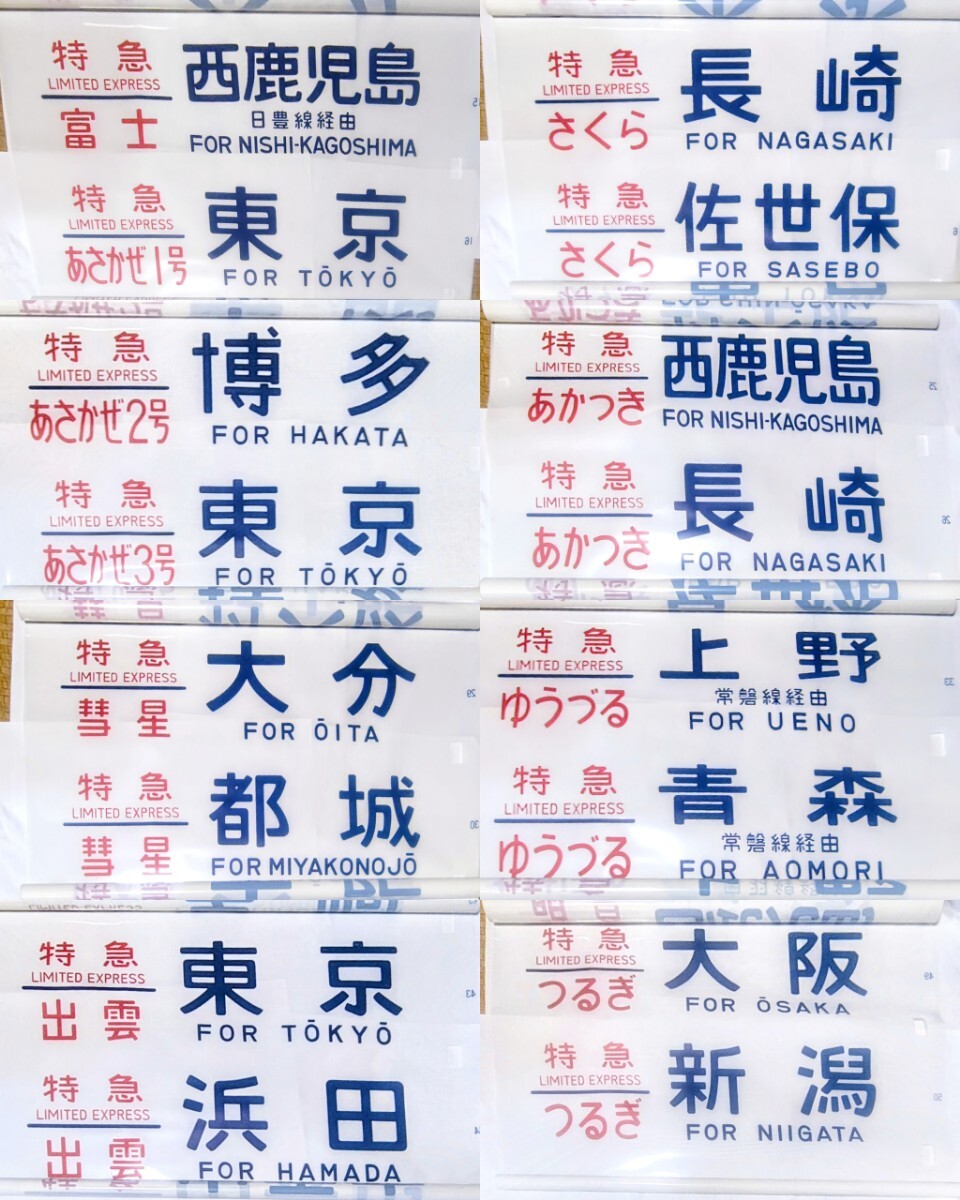 特急
LIMITED EXPRESS
富士
西鹿児島
日豊線経由
FOR NISHI-KAGOSHIMA
特急
LIMITED EXPRESS
あさかぜ1号
東京
FOR TŌKYŌ
16
特急
LIMITED EXPRESS
さくら
長崎
FOR NAGASAKI
特急
LIMITED EXPRESS
さくら
佐世保
FOR SASEBO
特急
LIMITED EXPRESS
あさかぜ2号
博多
FOR HAKATA
特急
LIMITED EXPRESS
あさかぜ3号
東京
FOR TŌKYŌ
特急
LIMITED EXPRESS
あかつき
西鹿児島
FOR NISHI-KAGOSHIMA
25
特急
LIMITED EXPRESS
あかつき
長崎
FOR NAGASAKI
26
特急
LIMITED EXPRESS
彗星
大分
FOR ŌITA
29
特急
LIMITED EXPRESS
彗星
都城
FOR MIYAKONOJŌ
30
特急
LIMITED EXPRESS
ゆうづる
上野
常磐線経由
FOR UENO
33
特急
LIMITED EXPRESS
ゆうづる
青森
常磐線経由
FOR AOMORI
特急
LIMITED EXPRESS
出雲
東京
FOR TŌKYŌ
43
特急
LIMITED EXPRESS
出雲
浜田
FOR HAMADA
特急
LIMITED EXPRESS
つるぎ
大阪
FOR ŌSAKA
49
特急
LIMITED EXPRESS
つるぎ
新潟
FOR NIIGATA
50